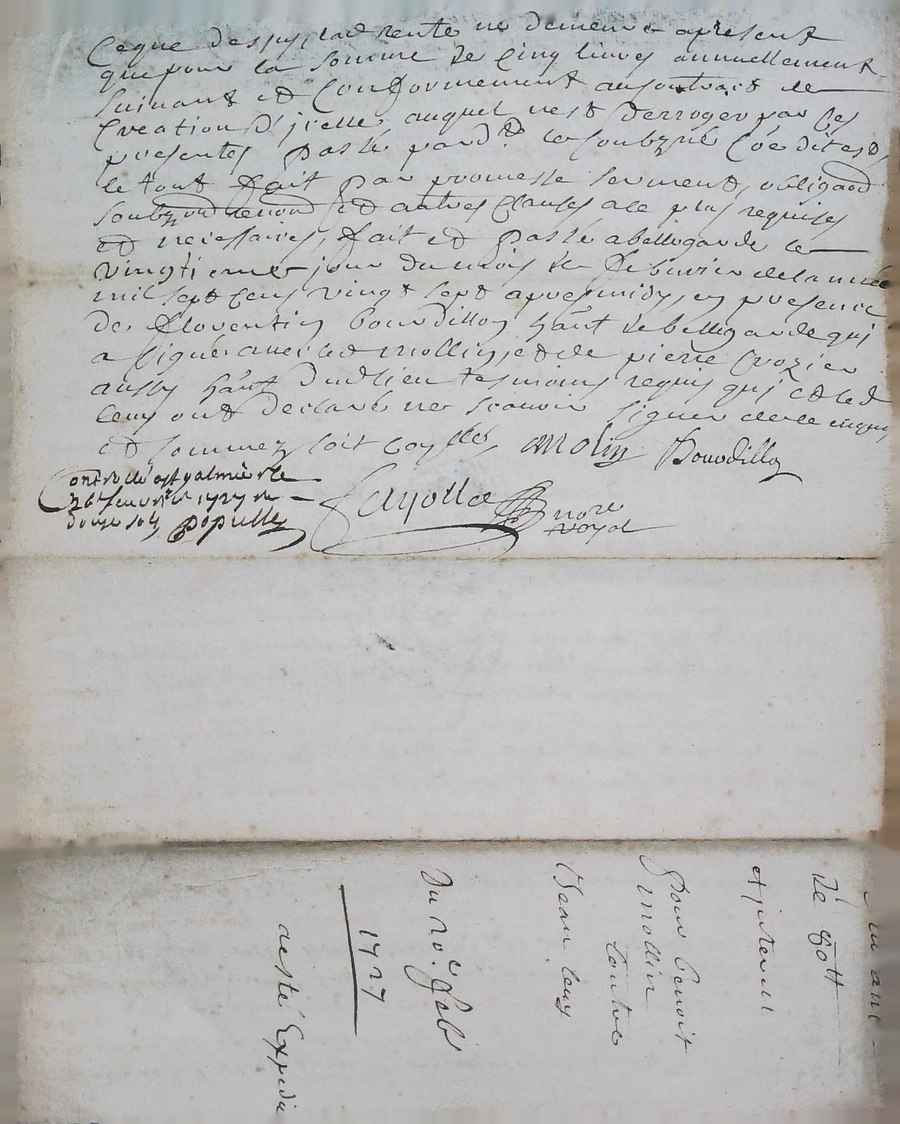 ce que dessus, lad rente ne demeure apresent
que pour la somme de Cinq livres annuellement
suivant et Conformement au contract de
Creation d'icelle auquel nest derroger par ces
presentes passé pard.
le tout fait par promesse serment, obligaon
soubz renon et autres Clauses a ce plus requises
et necessaires, fait et passé a bellegarde le
vingtieme jour du mois de febvrier de lannée
mil sept cens vingt sept apres midy, en presence
de florentin bourdillon hant de bellegarde qui
a signé avec led mollin, et de pierre Crozier
aussy hant dud lieu tesmoins requis qui et led
leus ont declaré ne scavoir signer de ce enquis
et sommez soit
aMolin Bourdillon
Controllé a st galmier le
26e fevrier 1727 R
douze sols
Fayolle
nore
royal
Le
et interest
Pour benoit
mollin
Contre
Jean leus
Du 20e Feb
1727
a esté Expedié